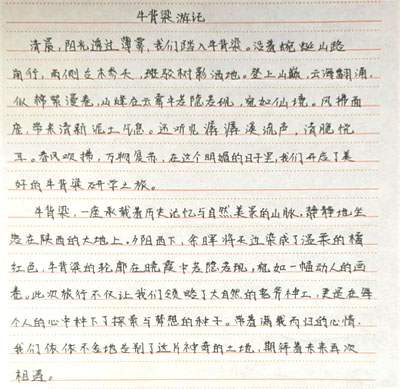 牛背梁游记
清晨，阳光透过薄雾，我们踏入牛背梁。沿着蜿蜒山路
前行，两侧古木参天，斑驳树影洒地。登上山巅，云海翻涌，
似棉絮漫卷，山峰在云雾中若隐若现，宛如仙境。风拂面
庞，带来清新泥土气息。还听见潺潺溪流声，清脆悦
耳。春风吹拂，万物复苏，在这个明媚的日子里，我们开启了美
好的牛背梁研学之旅。
牛背梁，一座承载着历史记忆与自然美景的山脉，静静地坐
落在陕西的大地上，夕阳西下，余晖将天边染成了温柔的橘
红色，牛背梁的轮廓在晚霞中若隐若现，宛如一幅动人的画
卷。此次旅行不仅让我们领略了大自然的鬼斧神工，更是在每
个人的心中种下了探索与梦想的种子。带着满载而归的心情，
我们依依不舍地告别了这片神奇的土地，期待着未来再次
相遇。